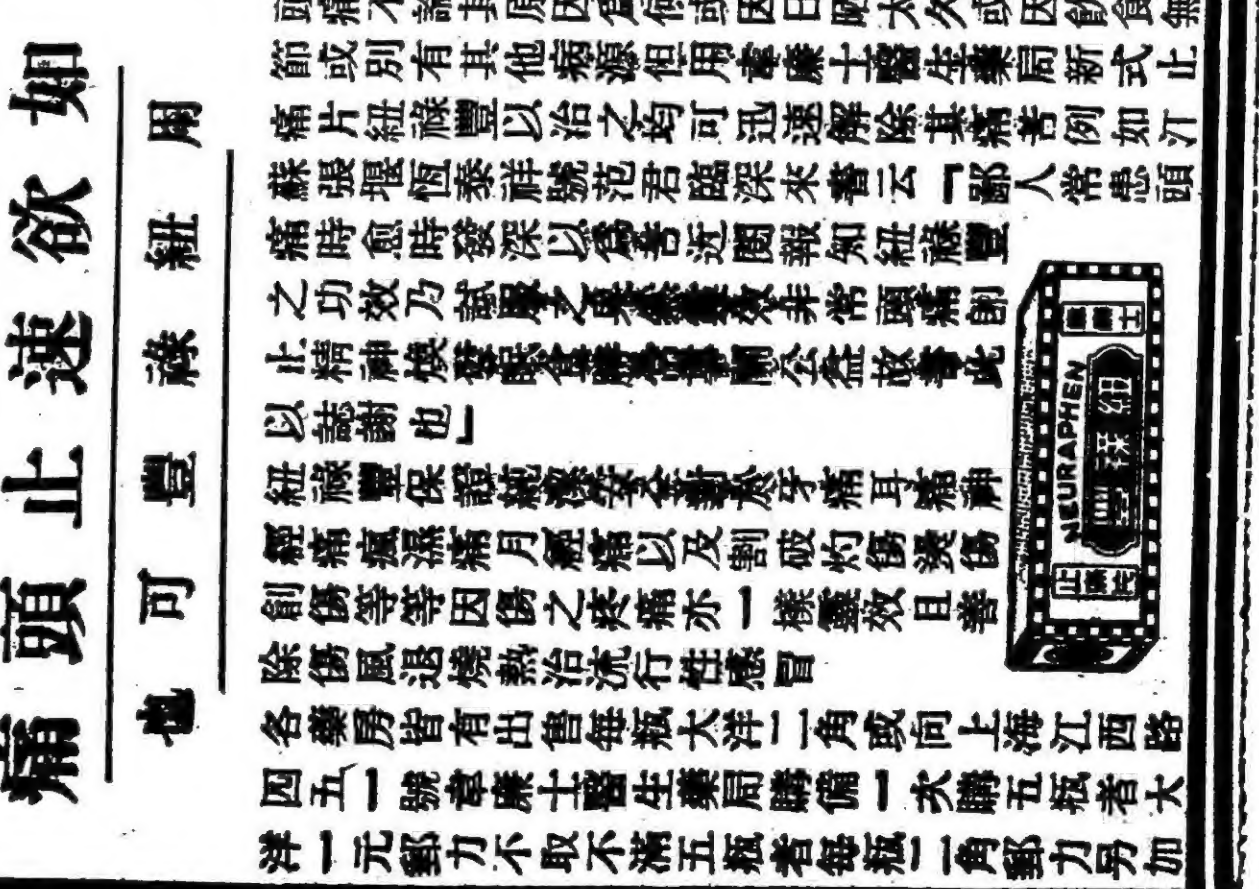 如欲速止頭痛
用紐祿豐可也
頭痛不論其原因為何或因日晒太久或因飲食無
節或別有其他病源但用韋廉士醫生藥局新式止
痛片紐祿豐以治之均可迅速解除其痛苦例如江
蘇張堰恆泰祥號范君臨深來書云「鄙人常患頭
痛時愈時發深以爲苦近閱報知紐祿豐
之功效乃試服之果然靈效非常頭痛卽
止精神煥發眠食事關公益故書此
以誌謝也」
紐祿豐保證純潔安全對於牙痛耳痛神
經痛瘋濕痛月經痛以及割破灼傷燙傷
創傷等等因傷之疼痛亦一樣靈效且善
除傷風退燒熱治流行性感冒
各藥房皆有出售每瓶大洋二角或向上海江西路
四五一號韋廉士醫生藥局購備一次購五瓶者大
洋一元郵力不取不滿五瓶者每瓶二角郵力另加
韋廉士
NEURAPHEN
紐祿豐
止痛片